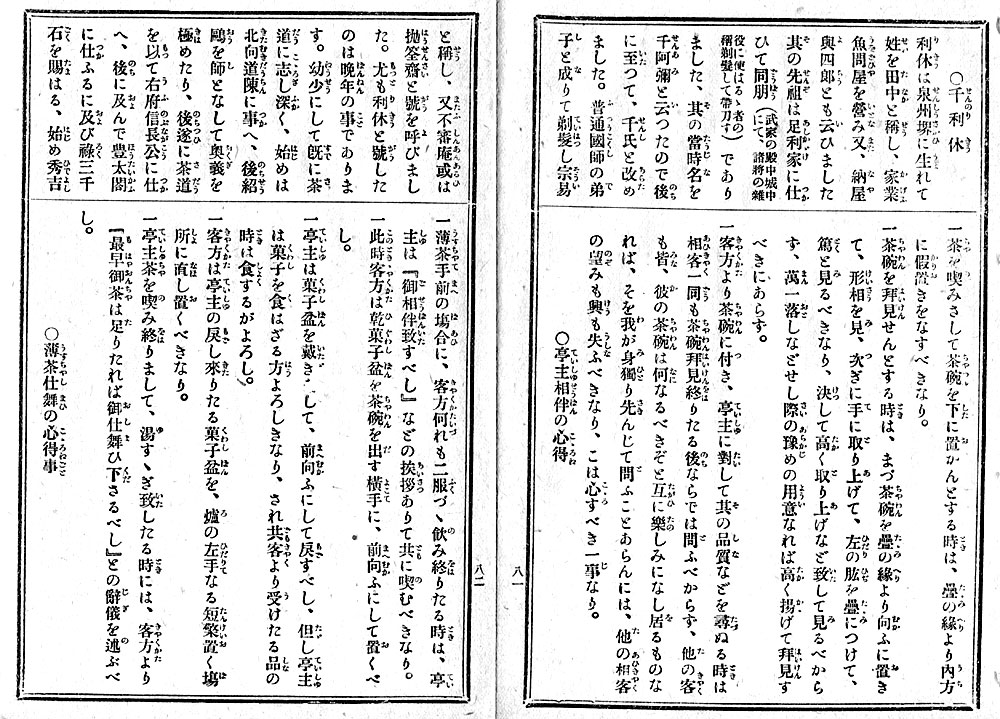 ○千利休
利休は泉州堺に生れて
姓を田中と稱し、家業
魚問屋を營み又、納屋
與四郎とも云ひました
其の先祖は足利家に仕
ひて同朋（武家の殿中城中にて、諸將の雜
役に使はるゝ者の稱剃髮して帶刀す）であり
ました、其の當時名を
千阿彌と云つたので後
に至つて、千氏と改め
ました。普通國師の弟
子と成りて剃髮し宗易
一茶を喫みさして茶碗を下に置かんとする時は、疊の緣より內方
に假置きをなすべきなり。
一茶碗を拜見せんとする時は、まづ茶碗を疊の緣より向ふに置き
て、形相を見、次ぎに手に取り上げて、左の肱を疊につけて、
篤と見るべきなり、決して高く取り上げなど致して見るべから
ず、萬一落しなどせし際の豫めの用意なれば高く揚げて拜見す
べきにあらす。
一客方より茶碗に付き、亭主に對して其の品質などを尋ぬる時は
相客一同も茶碗拜見終りたる後ならでは問ふべからず、他の客
も皆、彼の茶碗は何なるべきぞと互に樂しみになし居るものな
れば、そを我が身獨り先んじて問ふことあらんには、他の相客
の望みも興も失ふべきなり、こは心すべき一事なり。
○亭主相伴の心得
八一
と稱し、又不審庵或は
拋筌齋と號を呼びまし
た。尤も利休と號した
のは晚年の事でありま
す。幼少にして旣に茶
道に志し深く、始めは
北向道陳に事へ、後紹
鷗を師となして奧義を
極めたり、後遂に茶道
を以て右府信長公に仕
へ、後に及んで豐太閤
に仕ふるに及び祿三千
石を賜はる、始め秀吉
一薄茶手前の場合に、客方何れも二服づゝ飮み終りたる時は、亭
主は『御相伴致すべし』などの挨拶ありて共に喫むべきなり。
一此時客方は乾菓子盆を茶碗を出す橫手に、前向ふにして置くべ
し。
一亭主は菓子盆を戴きして、前向ふにして戾すべし、但し亭主
は菓子を食はざる方よろしきなり、され共客より受けたる品の
時は食するがよろし。
一客方は亭主の戾し來りたる菓子盆を、爐の左手なる短檠置く場
所に直し置くべきなり。
一亭主茶を喫み終りまして、湯すゝぎ致したる時には、客方より
『最早御茶は足りたれば御仕舞ひ下さるべし』との辭儀を述ぶべ
し。
○薄茶仕舞の心得事
八二